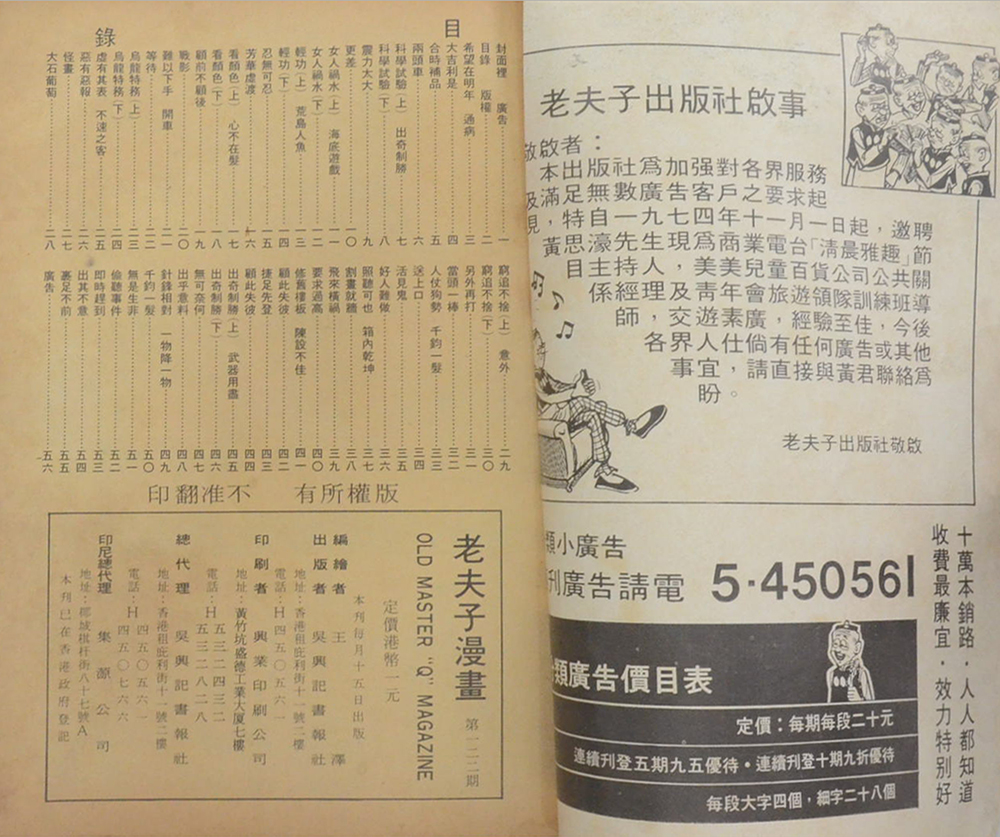 目錄
封面裡 廣告……一
目錄 版權……二
希望在明年 通病……三
大吉利是……四
合時補品……五
兩頭車……六
科學試驗（上） 出奇制勝……七
科學試驗（下）……八
震力太大……九
更差……一〇
女人禍水（上） 海底遊戲……一一
女人禍水（下）……一二
輕功（上） 荒島人魚……一三
輕功（下）……一四
忍無可忍……一五
芳華虛渡……一六
看顏色（上） 心不在髮……一七
看顏色（下）……一八
顧前不顧後……一九
戰影……二〇
難以下手 開車……二一
等待……二二
烏龍特務（上）……二三
烏龍特務（下）……二四
虛有其表 不速之客……二五
惡有惡報……二六
怪畫……二七
大石葡萄……二八
窮追不捨（上） 意外……二九
窮追不捨（下）……三〇
另外再打……三一
當頭一棒……三二
人仗狗勢 千鈞一髮……三三
送上口……三四
活見鬼……三五
好人難做……三六
照聽可也 箱內乾坤……三七
割畫就牆……三八
飛來橫禍……三九
要求過高……四〇
修舊樓板 陳設不佳……四一
顧此失彼……四二
捷足先登……四三
顧此失彼……四四
出奇制勝（上） 武器用盡……四五
出奇制勝（下）……四六
無可奈何……四七
出乎意料……四八
針鋒相對 一物降一物……四九
千鈞一髮……五〇
無是生非……五一
偷聽事件……五二
即時趕到……五三
出其不意……五四
裹足不前……五五
廣告……五六
版權所有 不准翻印
老夫子漫畫 第一二二期
OLD MASTER "Q" MAGAZINE
定價港幣一元
本刊每月十五日出版
編繪者 王澤
出版者 吳興記書報社
地址：香港租庇利街十一號二樓
電話：H四五〇五六一
印刷者 興業印刷公司
地址：黃竹坑盛德工業大厦七樓
電話：H五三二四三二
五三二八二八
總代理 吳興記書報社
地址：香港租庇利街十一號二樓
電話：H四五〇五六一
四五〇七六六
印尼總代理 集源公司
地址：椰城棋杆街八十七號A
本刊已在香港政府登記
老夫子出版社啟事
敬啟者：
本出版社爲加强對各界服務
及滿足無數廣告客戶之要求起
見，特自一九七四年十一月一日起，邀聘
黃思濠先生現爲商業電台「清晨雅趣」節
目主持人，美美兒童百貨公司公共關
係經理，及青年會旅遊領隊訓練班導
師，交遊素廣，經驗至佳，今後
各界人仕倘有任何廣告或其他
事宜，請直接與黃君聯絡爲
盼。
老夫子出版社敬啟
類小廣告
刊廣告請電 5·450561
十萬本銷路·人人都知道
收費最廉宜·效力特別好
類廣告價目表
定價：每期每段二十元
連續刊登五期九五優待·連續刊登十期九折優待
每段大字四個，細字二十八個